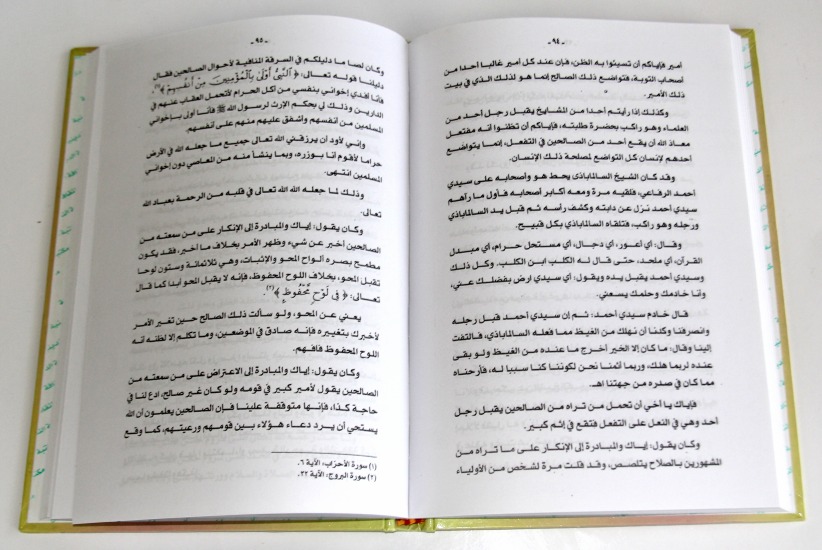 - ٩٤ -
أمير فإياكم أن تسيئوا به الظن، فإن عند كل أمير غالبا أحدا من
أصحاب التوبة، فتواضع ذلك الصالح إنما هو لذلك الذي في بيت
ذلك الأمير.
وكذلك إذا رأيتم أحدا من المشايخ يقبل رجل أحد من
العلماء وهو راكب بحضرة طلبته، فإياكم أن تظنوا أنه مفتعل
معاذ الله أن يقع أحد من الصالحين في التفعل، إنما يتواضع
أحدهم لإنسان كل التواضع لمصلحة ذلك الإنسان.
وقد كان الشيخ السالماباذى يحط هو وأصحابه على سيدي
أحمد الرفاعي، فلقيه مرة ومعه أكابر أصحابه فأول ما رآهم
سيدي أحمد نزل عن دابته وكشف رأسه ثم قبل يد السالماباذي
ورجله وهو راكب، فتلقاه السالماباذي بكل قبيح.
وقال: أي أعور، أي دجال، أي مستحل حرام، أي مبدل
القرآن، أي ملحد، حتى قال له الكلب ابن الكلب. وكل ذلك
وسيدي أحمد يقبل يده ويقول: أي سيدي ارض بفضلك عني،
وأنا خادمك وحلمك يسعني.
قال خادم سيدي أحمد: ثم إن سيدي أحمد قبل رجله
وانصرفنا وكلنا أن نهلك من الغيظ مما فعله السالماباذي، فالتفت
إلينا وقال: ما كان إلا الخير أخرج ما عنده من الغيظ ولو بقى
عنده لربما هلك، وربما أثمنا نحن لكوننا كنا سببا له، فأرحناه
مما كان في صدره من جهتنا اهـ.
فإياك يا أخي أن تحمل من تراه من الصالحين يقبل رجل
أحد وهي في النعل على التفعل فتقع في إثم كبير.
وكان يقول: إياك والمبادرة إلى الإنكار على ما تراه من
المشهورين بالصلاح يتلصص، وقد قلت مرة لشخص من الأولياء
- ٩٥ -
وكان لصا ما دليلكم في السرقة المنافية لأحوال الصالحين فقال
دليلنا قوله تعالى: ﴿ النَّبِيُّ أَوْلَىٰ بِالْمُؤْمِنِينَ مِنْ أَنفُسِهِمْ ﴾(١).
فأنا أفدي إخواني بنفسي من أكل الحرام لأتحمل العقاب عنهم في
الدارين وذلك لي بحكم الإرث لرسول الله ﷺ فأنا أولى بإخواني
المسلمين من أنفسهم وأشفق عليهم منهم على أنفسهم.
وإني لأود أن يرزقني الله تعالى جميع ما جعله الله في الأرض
حراما لأقوام أنا بوزره، وبما ينشأ منه من المعاصي دون إخواني
المسلمين انتهى.
وذلك لما جعله الله الله تعالى في قلبه من الرحمة بعباد الله
تعالى.
وكان يقول: إياك والمبادرة إلى الإنكار على من سمعته من
الصالحين أخبر عن شيء وظهر الأمر بخلاف ما أخبر، فقد يكون
مطمح بصره ألواح المحو والإثبات، وهي ثلاثمائة وستون لوحا
تقبل المحو، بخلاف اللوح المحفوظ، فإنه لا يقبل المحو أبدا كما قال
تعالى: ﴿ فِي لَوْحٍ مَّحْفُوظٍ ﴾(٢).
يعني عن المحو، ولو سألت ذلك الصالح حين تغير الأمر
لأخبرك بتغييره فإنه صادق في الموضعين، وما تكلم إلا لظنه أنه
اللوح المحفوظ فافهم.
وكان يقول: إياك والمبادرة إلى الاعتراض على من سمعته من
الصالحين يقول لأمير كبير في قومه ولو كان غير صالح، ادع لنا في
حاجة كذا، فإنها متوقفة علينا فإن الصالحين يعلمون أن الله
يستحي أن يرد دعاء هؤلاء بين قومهم ورعيتهم، كما وقع
(١) سورة الأحزاب: الآية ٦.
(٢) سورة البروج: الآية ٢٢.